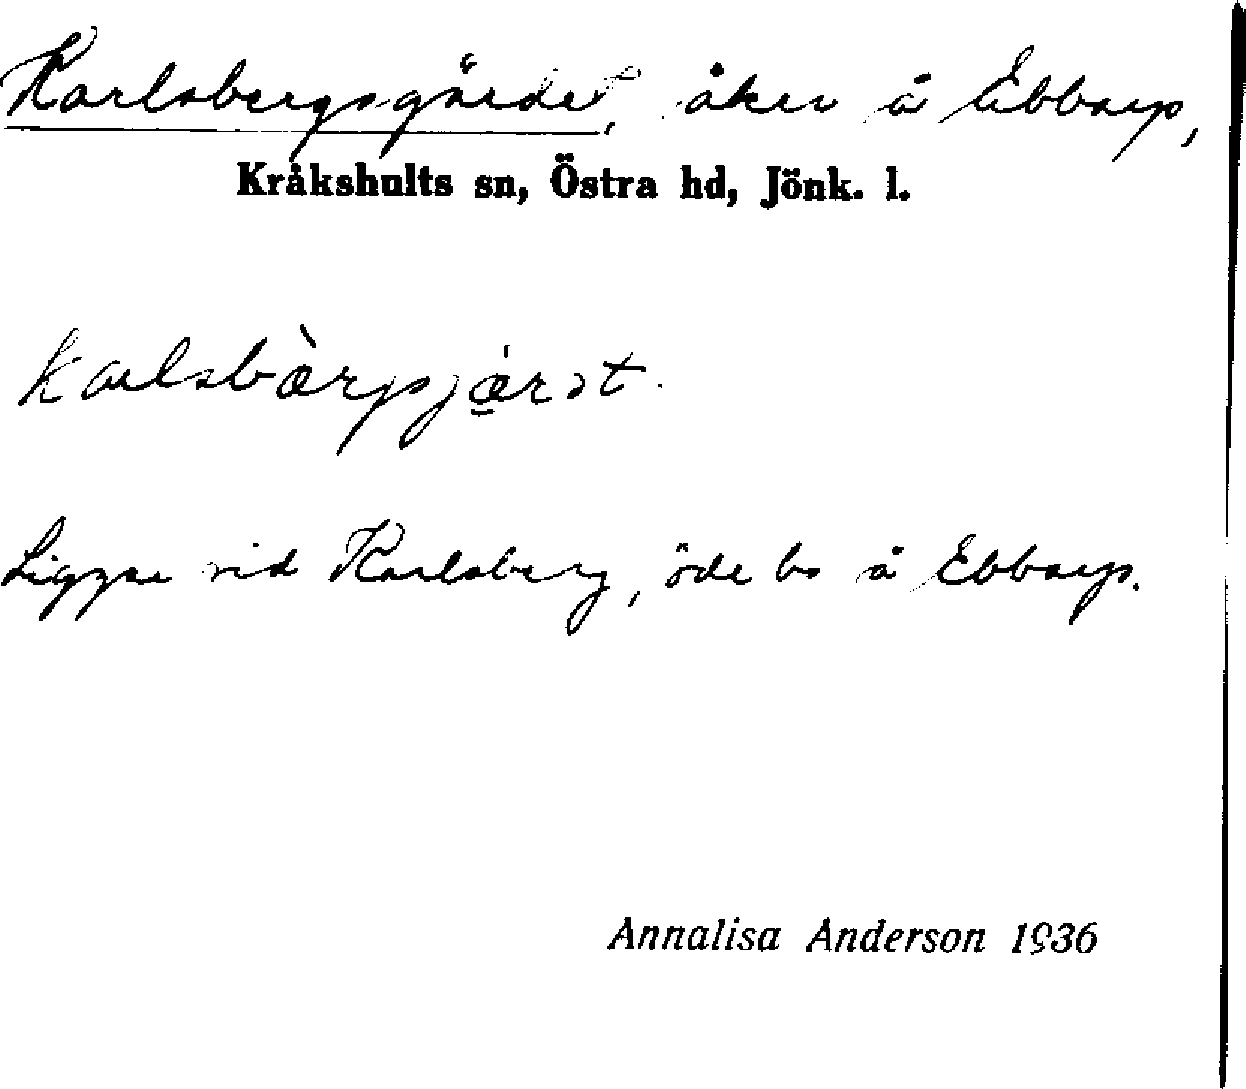 Karlsbergsgärdet, åker å Ebbarp,
Kråkshults sn, Östra hd, Jönk. l.
Ligger vid Karlsberg, öde bs å Ebbarp.
Annalisa Anderson 1936